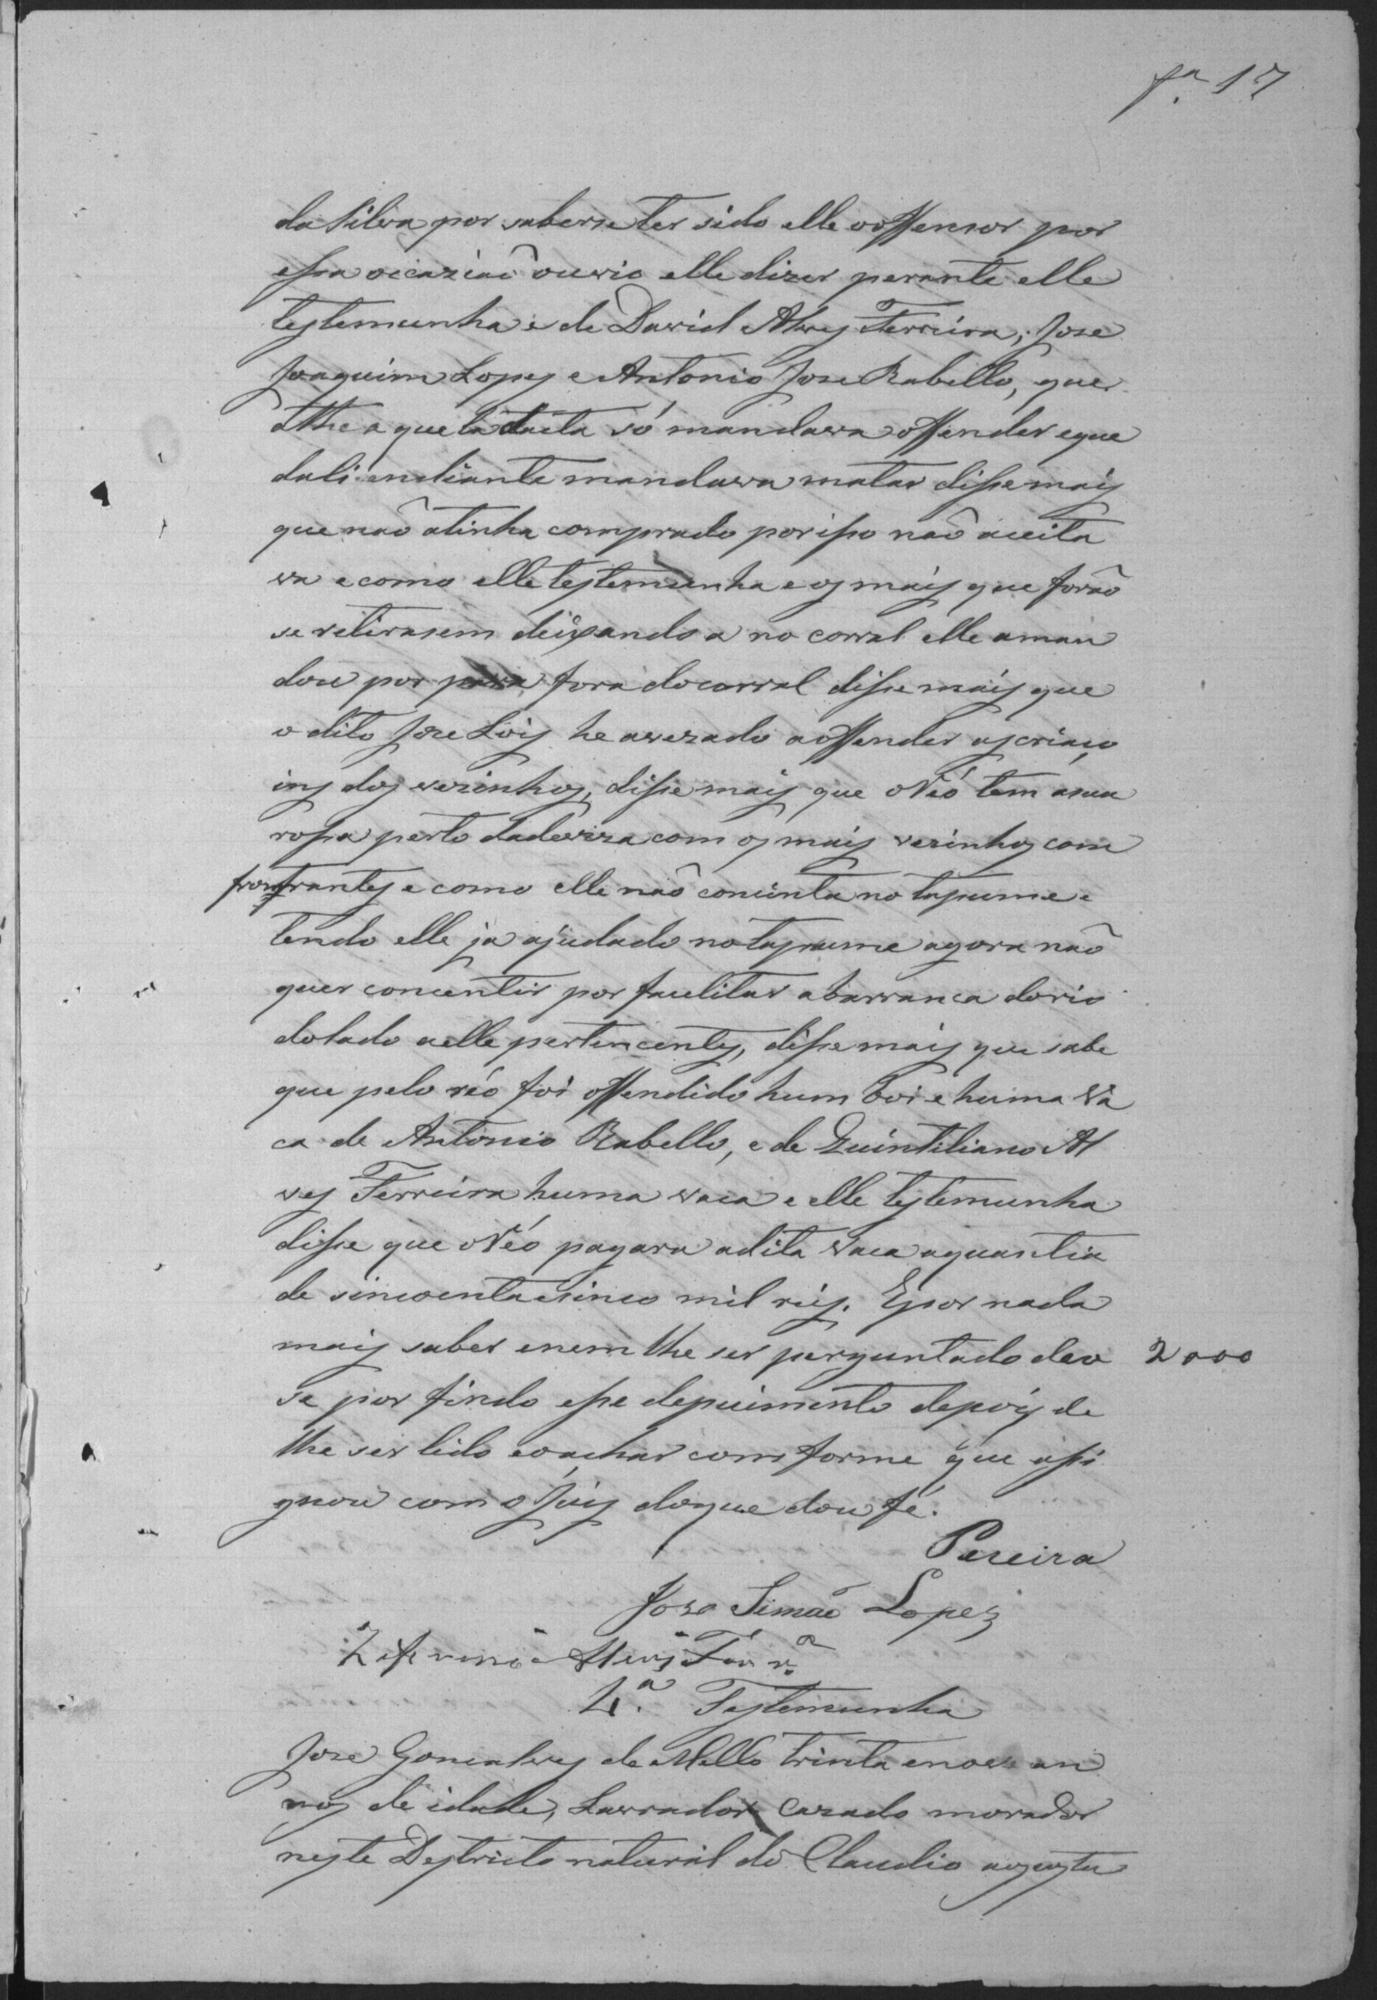 fª 17
da Silva por saberse ter sido elle o offensor por
essa occaziaõ ouvio elle dizer perante elle
testemunha e de David Alves Ferreira, Jose
Joaquim Lopes e Antonio Jose Rabello, que
athe aquela dacta só mandava offender e que
dali endiante mandava matar disse mais
que naõ atinha comprado por isso naõ aceita
va e como elle testemunha e os mais que foraõ
se retirasem deixando a no corral elle aman
dou por para fora do corral disse mais que
o dito Jose Lois he avezado a offender as criaço
ins dos vezinhos, disse mais que o Réo tem a sua
rossa perto da deviza com os mais vezinhos com
frontrantes e como elle naõ concinta no tapume e
tendo elle ja ajudado no tapume agora naõ
quer concentir por facilitar abarranca do rio
do lado a elle pertencentes, disse mais que sabe
que pelo réo foi offendido hum boi e huma va
ca de Antonio Rabello, e de Quintiliano Al
ves Ferreira huma vaca e elle testemunha
disse que o Réo pagara adita vaca aquantia
de sincoenta e sinco mil reis. E por nada
mais saber e nem lhe ser perguntado deu 2000
se por findo esse depuimento depois de
lhe ser lido e o achar comforme que assi
gnou com o Juis do que dou fé.
Pereira
Joze Simaõ Lopes
Zeferino Alves Ferrª
4.ª Testemunha
Jose Goncalves de Mello trinta e nove an
nos de idade, Lavrador Cazado morador
neste Destricto natural do Claudio aos custu